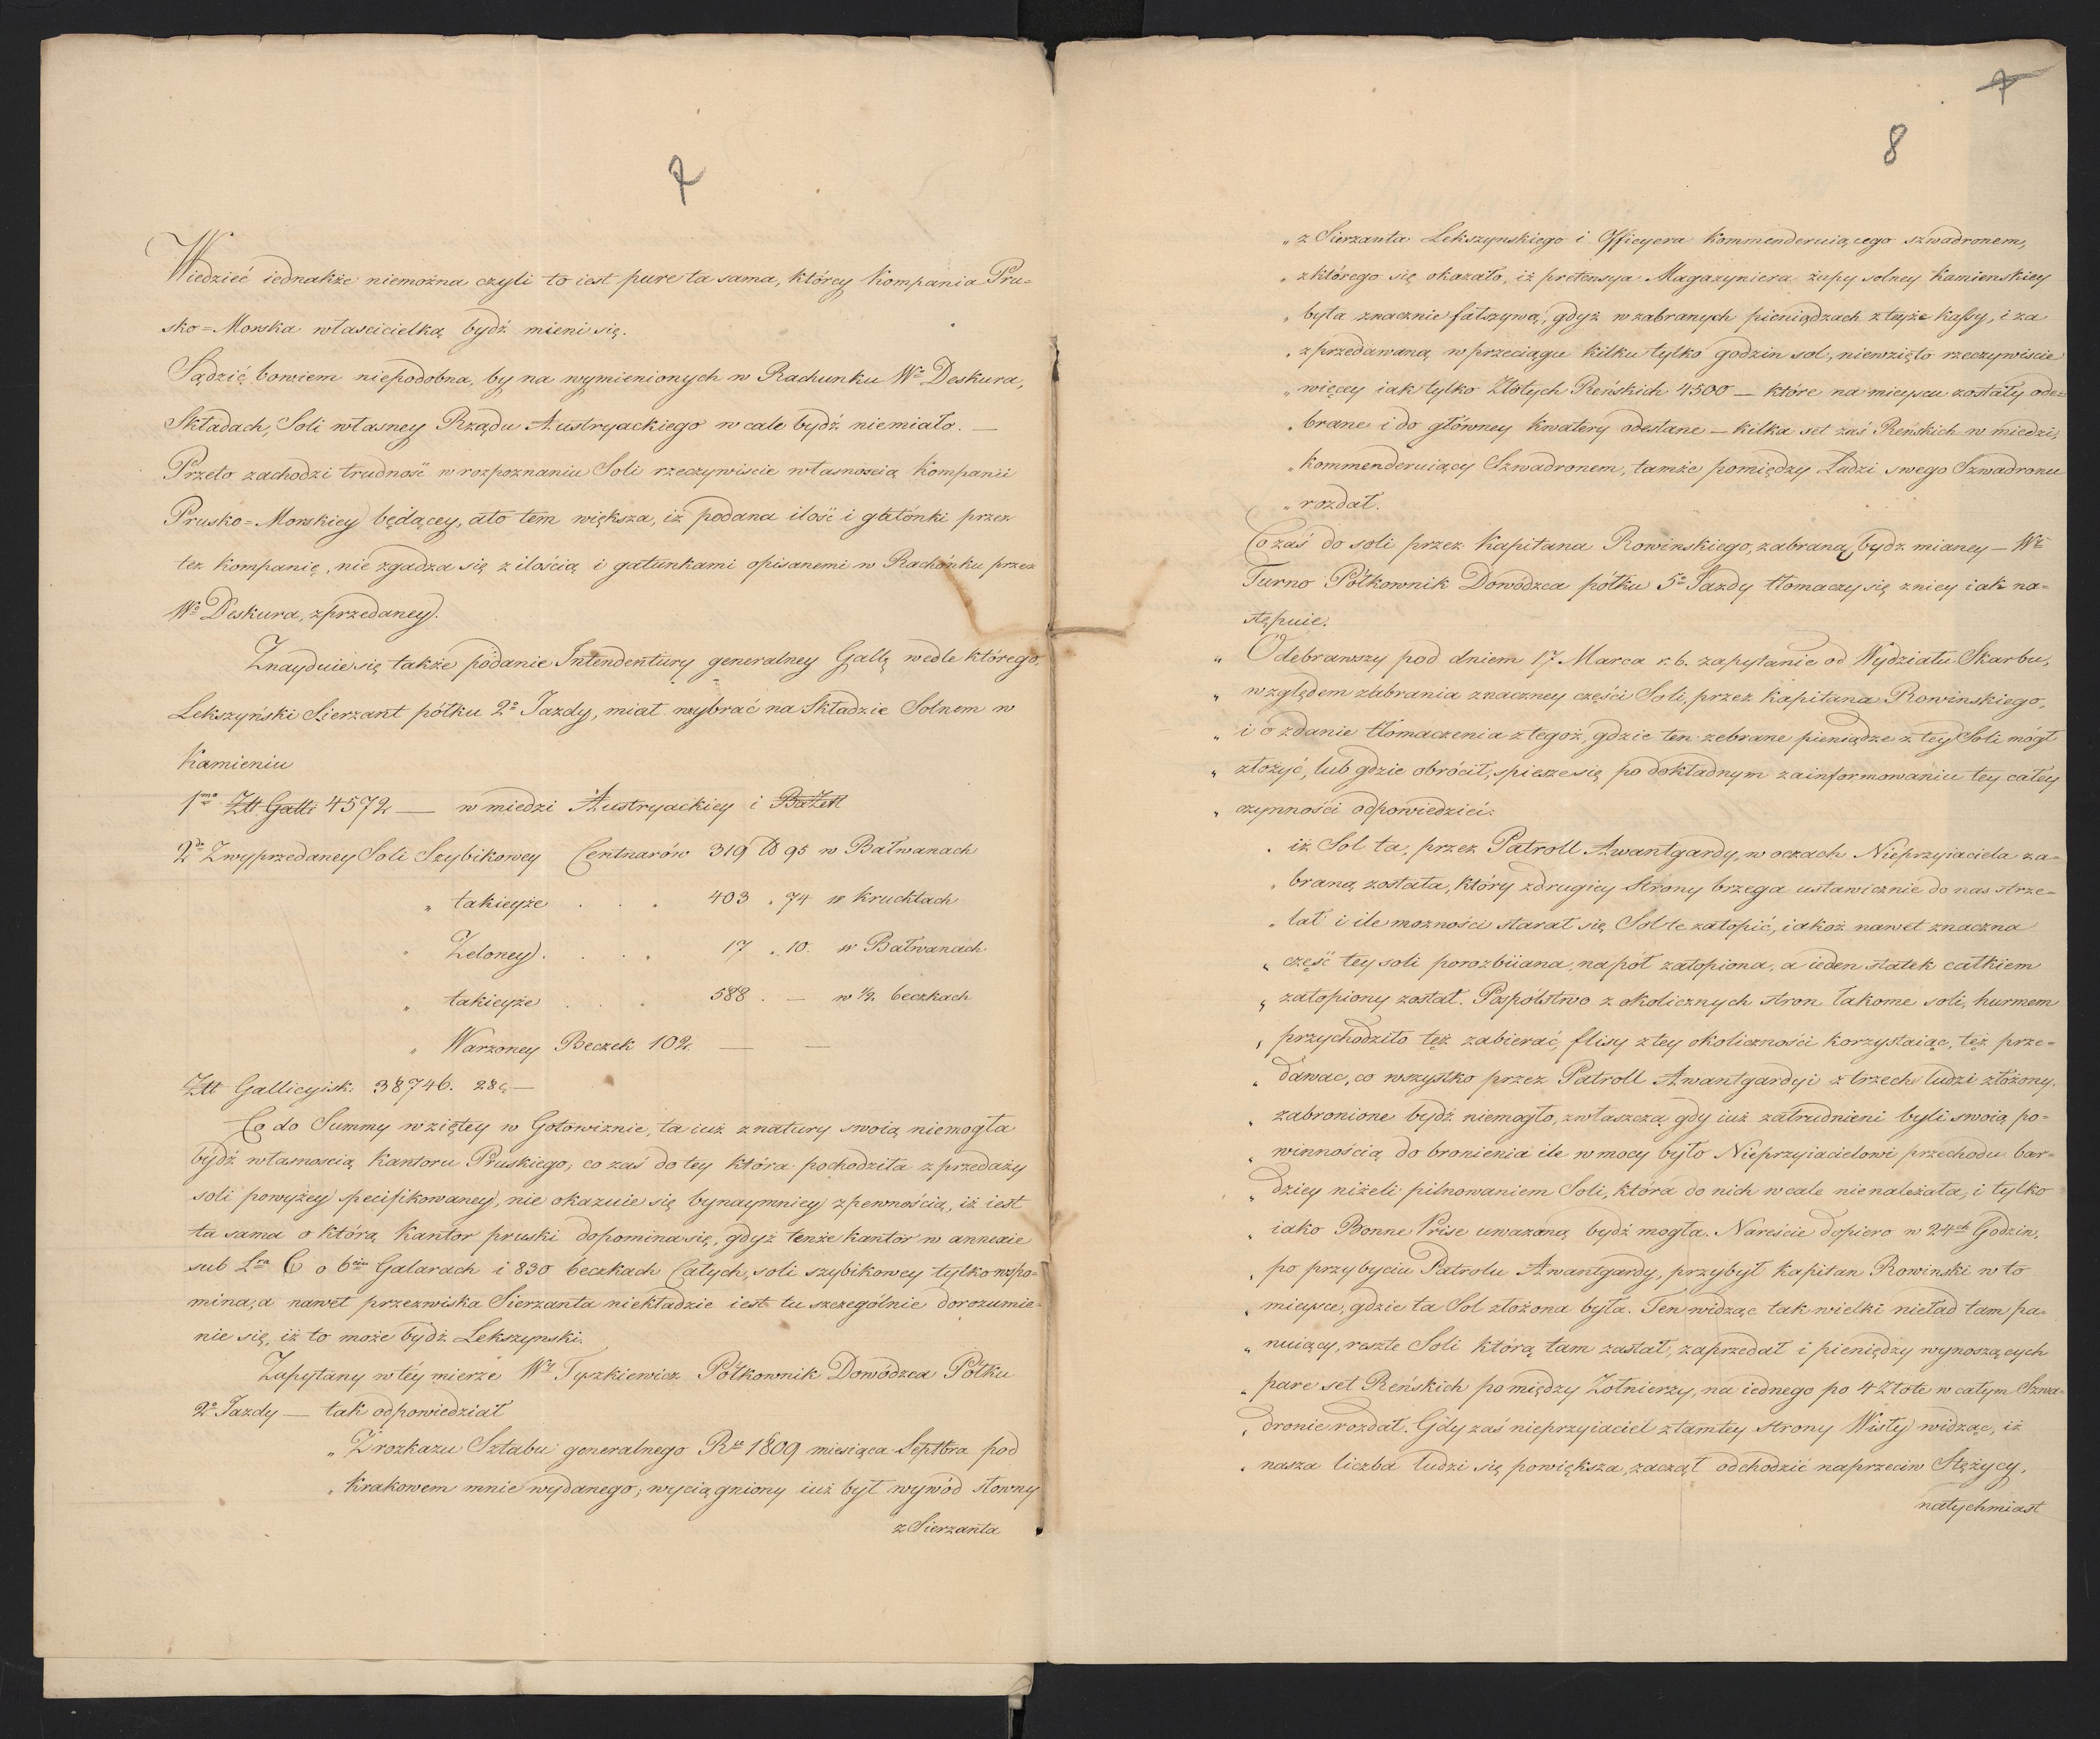 7
Wiedzieć iednakże niemożna czyli to iest pure ta sama, którey Kompania Pru=
sko=Morska własciccielką bydź mieni się.
Sądzić bowiem niepodobna, by na wymienionych w Rachunku Wo Deskura,
Składach, Soli własney Rządu Austryackiego wcale bydź niemiało. —
Przeto zachodzi trudność w rozpoznaniu Soli rzeczywiscie własnoscią Kompanii
Prusko=Morskiey będącey, ato tem większa, iż podana ilość i gatónki przez
tez kompanię, nie zgadza się z ilością i gatunkami opisanemi w Rachónku przez
Wo Deskura, zprzedaney.
Znayduie się także podanie Intendentury generalney Gallę wedle którego,
Lekszyński Sierzant pólku 2o Jazdy, miał wybrać na Składzie Solnem w
Kamieniu
1mo Ztt Galli 4572 — w miedzi Austryackiey i
2do Zwyprzedaney Soli Szybikowey Centnarów 319 ℔ 95 w Bałwanach
„ takieyże . . . 403 . 74 w Kruchtach
„ Zeloney . . . . 17 . 10. w Bałwanach
„ takieyże . . . 588 . — w ½. beczkach
„ Warzoney Beczek 102. — —
Ztt Gallicyisk: 38746. 28 —
Co do Summy wziętey w Gotowiznie, ta iuż znatury swoią niemogła
bydź własnoscią Kantoru Pruskiego; co zaś do tey która pochodziła z przedaży
soli powyżey specifikowaney, nie okazuie się bynaymniey zpewnością, iż iest
ta sama o którą Kantor pruski dopomina się, gdyż tenże kantor w annexie
sub Lra C o 6ciu Galarach i 830 beczkach Całych, soli szybikowey tylko wspo=
mina, a nawet przezwiska Sierzanta niekładzie iest tu szczególnie dorozumie=
nie się, iż to może bydź Lekszynski.
Zapytany wtéy mierze Wy Tyszkiewicz Półkownik Dowódzca Półku
2o Jazdy — tak odpowiedział
„ Zrozkazu Sztabu generalnego Rku 1809 miesiąca Septbra pod
„ Krakowem mnie wydanego; wyciągniony iuż był wywód słowny
z Sierzanta
7
8
„ z Sierzanta Lekszynskiego i Officyera kommenderuiącego szwadronem,
„ zktórego się okazało, iż pretensya Magazyniera żupy solney Kamienskiey
„ była znacznie fałszywą, gdyż w zabranych pieniądzach zteyże Kassy, i za
„ zprzedawaną w przeciągu kilku tylko godzin sol, niewzięto rzeczywiscie
„ więcey iak tylko Złotych Reńskich 4500 — które na mieyscu zostały ode=
„ brane i do główney kwatery odesłane — kilka set zaś Reńskich w miedzi,
„ kommenderuiący Szwadronem, tamże pomiędzy Ludzi swego Szwadronu
„ rozdał.
Co zaś do soli przez Kapitana Rowinskiego, zabraną bydz mianey — Wy
Turno Półkownik Dowódzca półku 5o Jazdy tłomaczy się zniey iak na=
stępuie.
„ Odebrawszy pod dniem 17 Marca r. b. zapytanie od Wydziału Skarbu,
„ względem zabrania znaczney części Soli, przez Kapitana Rowinskiego,
„ i o zdanie tłomaczenia ztegoż, gdzie ten zebrane pieniądze z tey Soli mógł
„ złożyć, lub gdzie obrócił, spiesze się po dokładnym zainformowaniu tey całey
„ czynności odpowiedzieć.
„ iż Sol ta, przez Patroll Awantgardy, w oczach Nieprzyiaciela za=
„ braną została, który zdrugiey strony brzega ustawicznie do nas strze=
„ lał i ile możności starał się Sol te zatopić, iakoż nawet znaczna
„ część tey soli porozbiiana, napół zatopiona, a ieden statek całkiem
„ zatopiony został. Pospólstwo z okolicznych stron łakome soli, hurmem
„ przychodziło też zabierać, flisy ztey okoliczności korzystaiąc, też prze=
„ dawac, co wszystko przez Patroll Awantgardyi z trzech ludzi złożony.
„ zabronione bydź niemogło, zwłaszcza gdy iuż zatrudnieni byli swoią po=
„ winnością do bronienia ile w mocy było Nieprzyiacielowi przechodu bar=
„ dziey niżeli pilnowaniem Soli, która do nich wcale nienależała, i tylko
„ iako Bonne Prise uwazaną bydź mogła. Nareście dopiero w 24ch Godzin,
„ po przybyciu Patrolu Awantgardy, przybył Kapitan Rowinski w to
„ mieysce, gdzie ta Sol złożona była. Ten widząc tak wielki nieład tam pa=
„ nuiący, reszte Soli którą tam zastał, zaprzedał i pieniędzy wynoszących
„ pare set Reńskich pomiędzy Żołnierzy, na iednego po 4 Złote w całym Szwa=
„ dronie rozdał. Gdy zaś nieprzyiaciel ztamtey strony Wisły widząc, iż
„ nasza liczba ludzi się powiększa, zaczął odchodzić naprzeciw Stężycy,
natychmiast